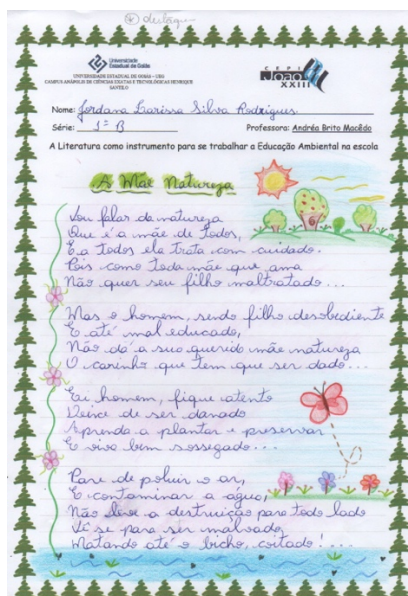 destaque
Universidade
Estadual de Goiás
UNIVERSIDADE ESTADUAL DE GOIÁS - UEG
CAMPUS ANÁPOLIS DE CIÊNCIAS EXATAS E TECNOLÓGICAS HENRIQUE
SANTILLO
CEPI
João
XXIII
Nome: Jordana Larissa Silva Rodrigues
Série: 1ª B Professora: Andréa Brito Macêdo
A Literatura como instrumento para se trabalhar a Educação Ambiental na escola
A Mãe Natureza
Vou falar da natureza
Que é a mãe de todos,
E a todos ela trata com cuidado.
Pois como toda mãe que ama
Não quer seu filho maltratado...
Mas o homem, sendo filho desobediente
E até mal educado,
Não dá a sua querida mãe natureza
O carinho que tem que ser dado...
Ei homem, fique atento
Deixe de ser danado
Aprenda a plantar e preservar
E viva bem sossegado...
Pare de poluir o ar,
E contaminar a água,
Não leve a destruição para todo lado
Vê se para ser malvado,
Matando até o bicho, coitado!...